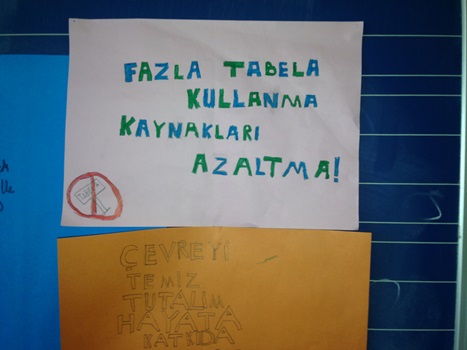 FAZLA TABELA
KULLANMA
KAYNAKLARI
AZALTMA!
ÇEVREYİ
TEMİZ
TUTALIM
HAYATA
KATKIDA